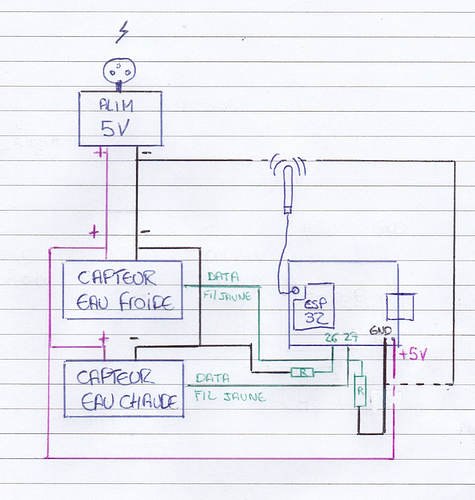 ALIM
5V
+ -
+ -
CAPTEUR
EAU FROIDE
DATA
FIL JAUNE
ESP
32
26 27
GND
+5V
R
R
+ -
CAPTEUR
EAU CHAUDE
DATA
FIL JAUNE